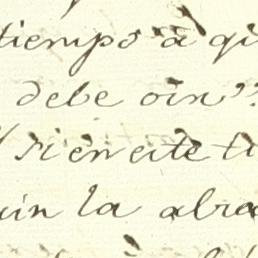 tiempo à qu
debe oir"
si en este ti
uin la abra